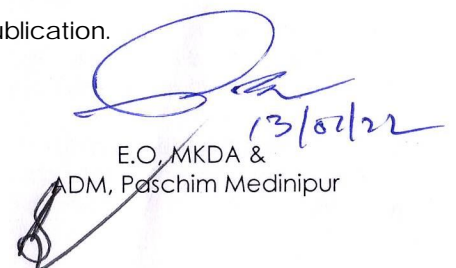 ublication.
13/01/22
E.O, MKDA &
ADM, Paschim Medinipur